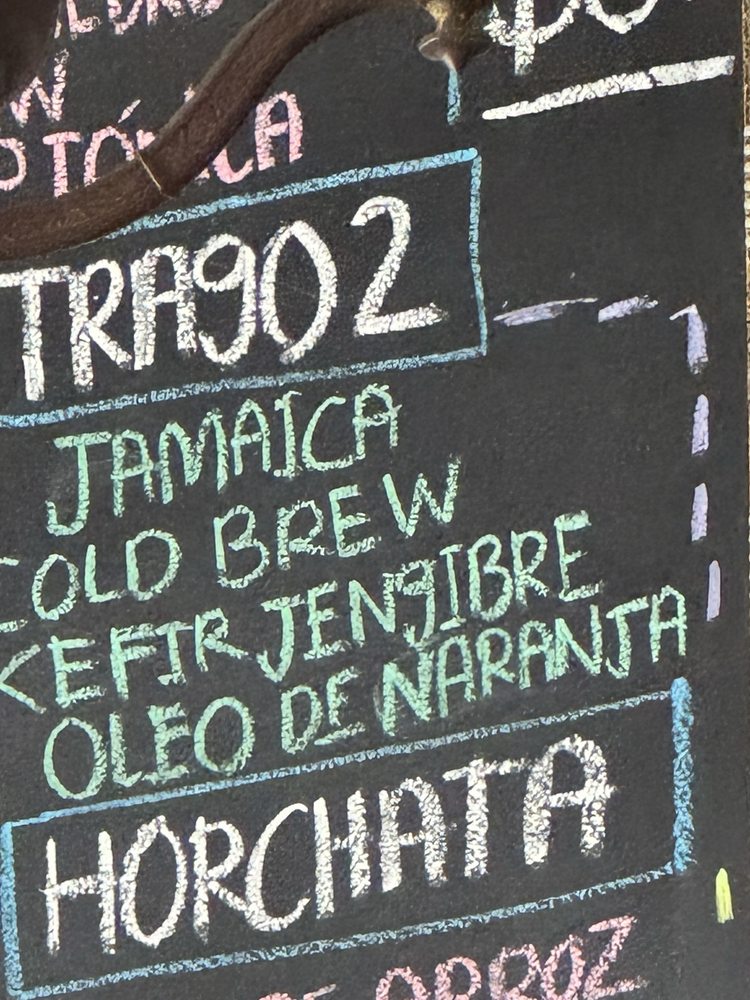 W
TRAGO 2
JAMAICA
COLD BREW
KEFIR JENGIBRE
OLEO DE NARANJA
HORCHATA
DE ARROZ